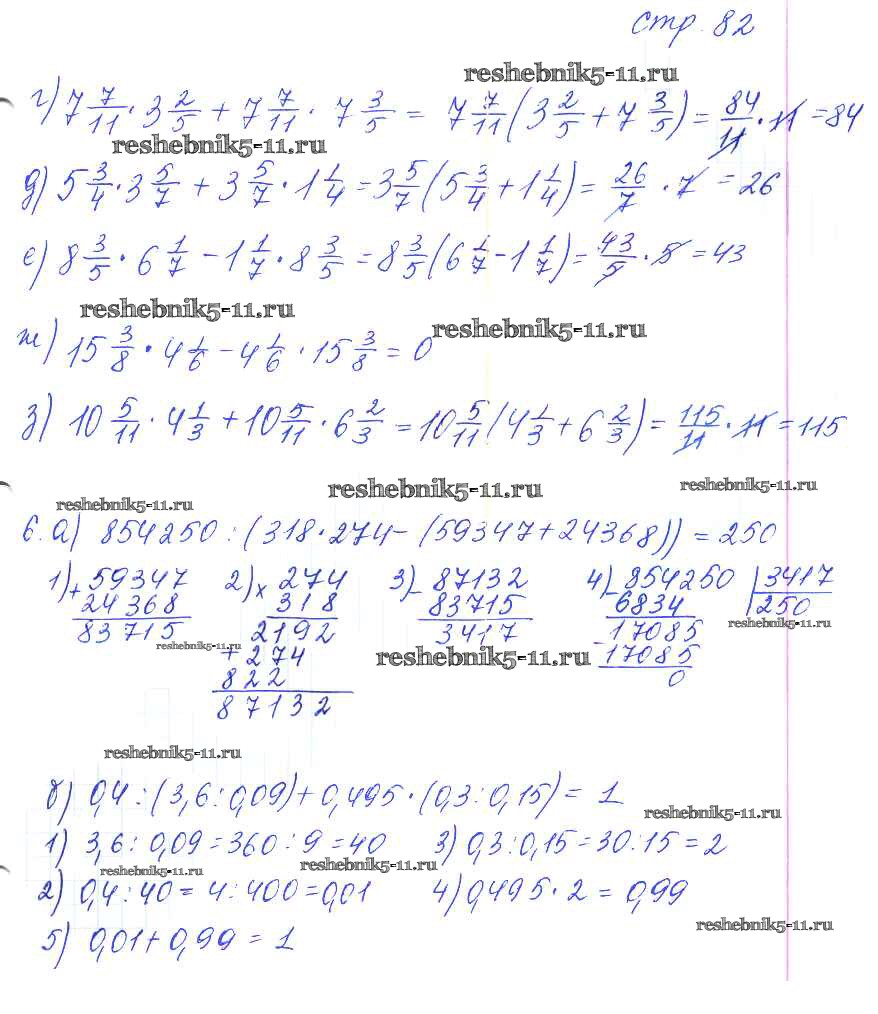 стр. 82
reshebnik5-11.ru
г) 7 7/11 · 3 2/5 + 7 7/11 · 7 3/5 = 7 7/11 (3 2/5 + 7 3/5) = 84/11 · 11 = 84
reshebnik5-11.ru
д) 5 3/4 · 3 5/7 + 3 5/7 · 1 1/4 = 3 5/7 (5 3/4 + 1 1/4) = 26/7 · 7 = 26
е) 8 3/5 · 6 1/7 - 1 1/7 · 8 3/5 = 8 3/5 (6 1/7 - 1 1/7) = 43/5 · 5 = 43
reshebnik5-11.ru
reshebnik5-11.ru
ж) 15 3/8 · 4 1/6 - 4 1/6 · 15 3/8 = 0
з) 10 5/11 · 4 1/3 + 10 5/11 · 6 2/3 = 10 5/11 (4 1/3 + 6 2/3) = 115/11 · 11 = 115
reshebnik5-11.ru
reshebnik5-11.ru
reshebnik5-11.ru
6. а) 854250 : (318 · 274 - (59347 + 24368)) = 250
1) + 59347 2) x 274 3) - 87132 4) - 854250 | 3417
24368 318 83715 6834 250
83715 2192 3417 - 17085
reshebnik5-11.ru
reshebnik5-11.ru
+ 274 17085
reshebnik5-11.ru
822 0
87132
reshebnik5-11.ru
б) 0,4 : (3,6 : 0,09) + 0,495 · (0,3 : 0,15) = 1
reshebnik5-11.ru
1) 3,6 : 0,09 = 360 : 9 = 40 3) 0,3 : 0,15 = 30 : 15 = 2
reshebnik5-11.ru
reshebnik5-11.ru
2) 0,4 : 40 = 4 : 400 = 0,01 4) 0,495 · 2 = 0,99
reshebnik5-11.ru
5) 0,01 + 0,99 = 1